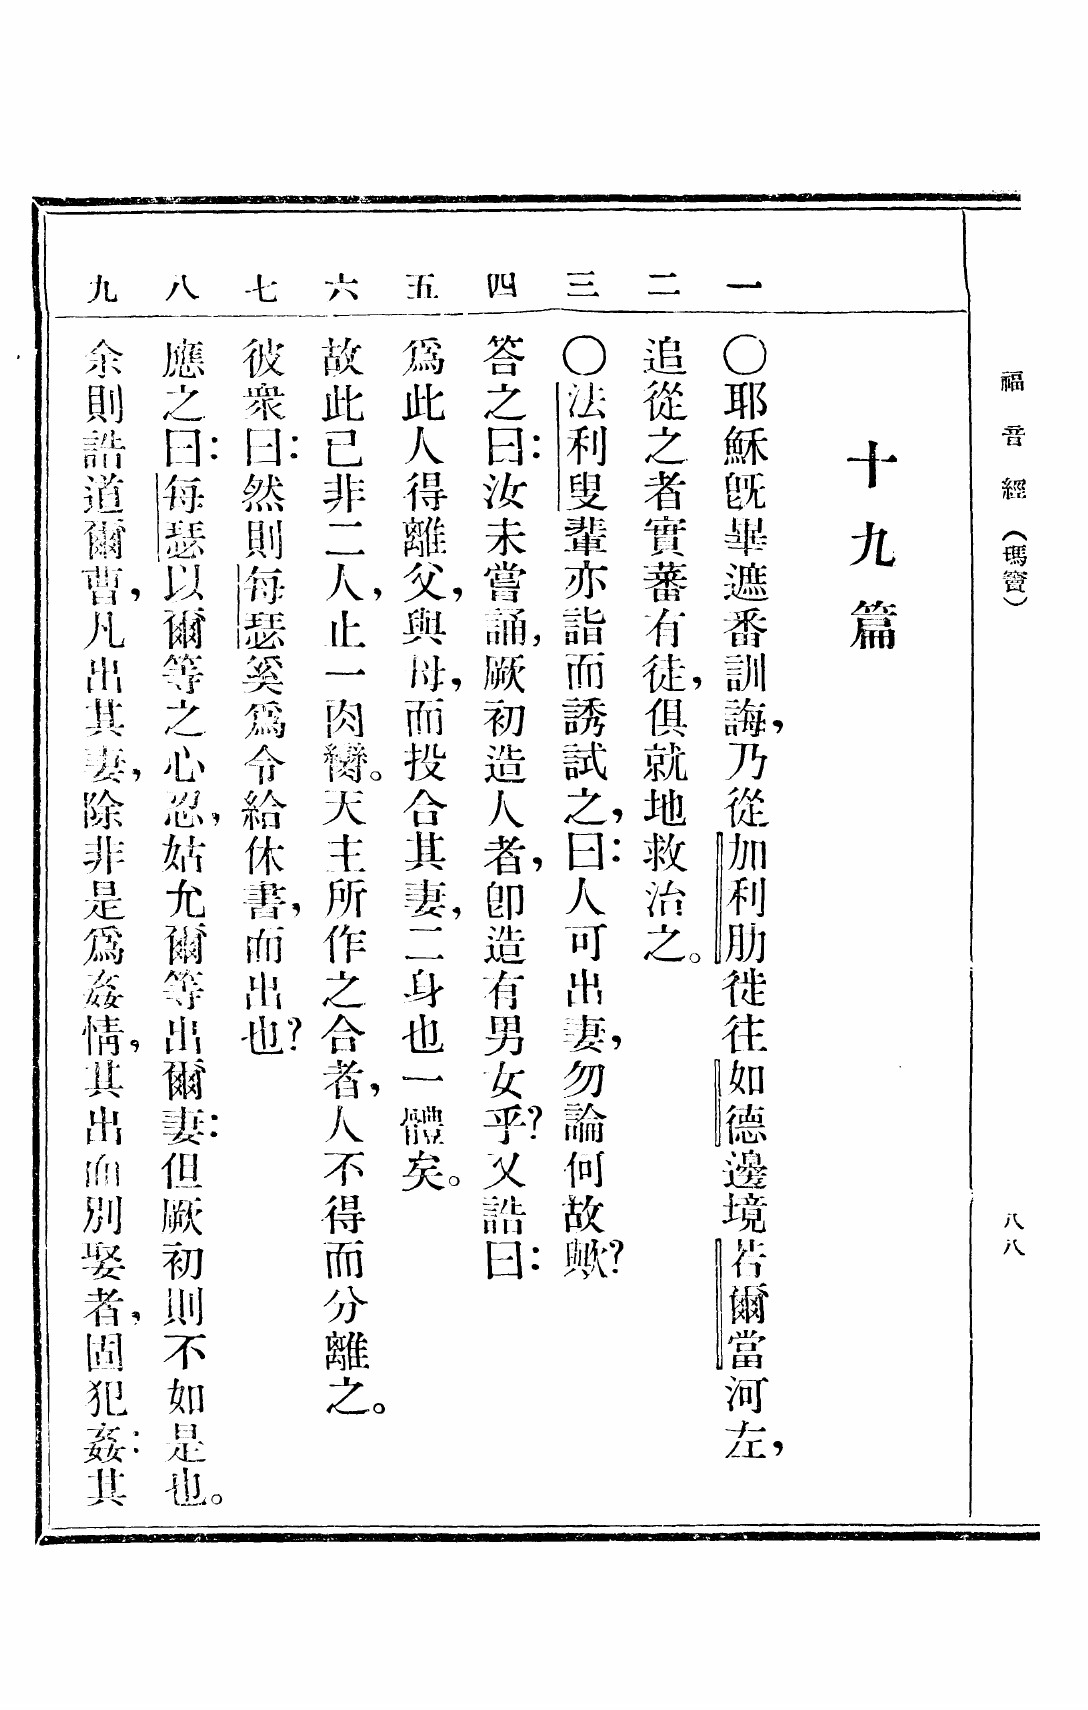 福音經（瑪竇）
八八
十九篇
一
〇耶穌旣畢遮番訓誨，乃從加利肋徙往如德邊境若爾當河左，
二
追從之者實蕃有徒，俱就地救治之。
三
〇法利叟輩亦詣而誘試之，曰：人可出妻，勿論何故歟？
四
答之曰：汝未嘗誦，厥初造人者，卽造有男女乎？又誥曰：
五
爲此人得離父，與母，而投合其妻，二身也一體矣。
六
故此已非二人，止一肉。天主所作之合者，人不得而分離之。
七
彼衆曰：然則每瑟奚爲令給休書，而出也？
八
應之曰：每瑟以爾等之心忍，姑允爾等出爾妻：但厥初則不如是也。
九
余則誥道爾曹，凡出其妻，除非是爲姦情，其出而別娶者，固犯姦：其